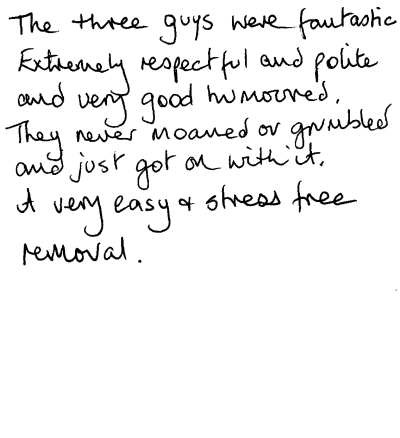 The three guys were fantastic
Extremely respectful and polite
and very good humoured.
They never moaned or grumbled
and just got on with it.
A very easy + stress free
removal.